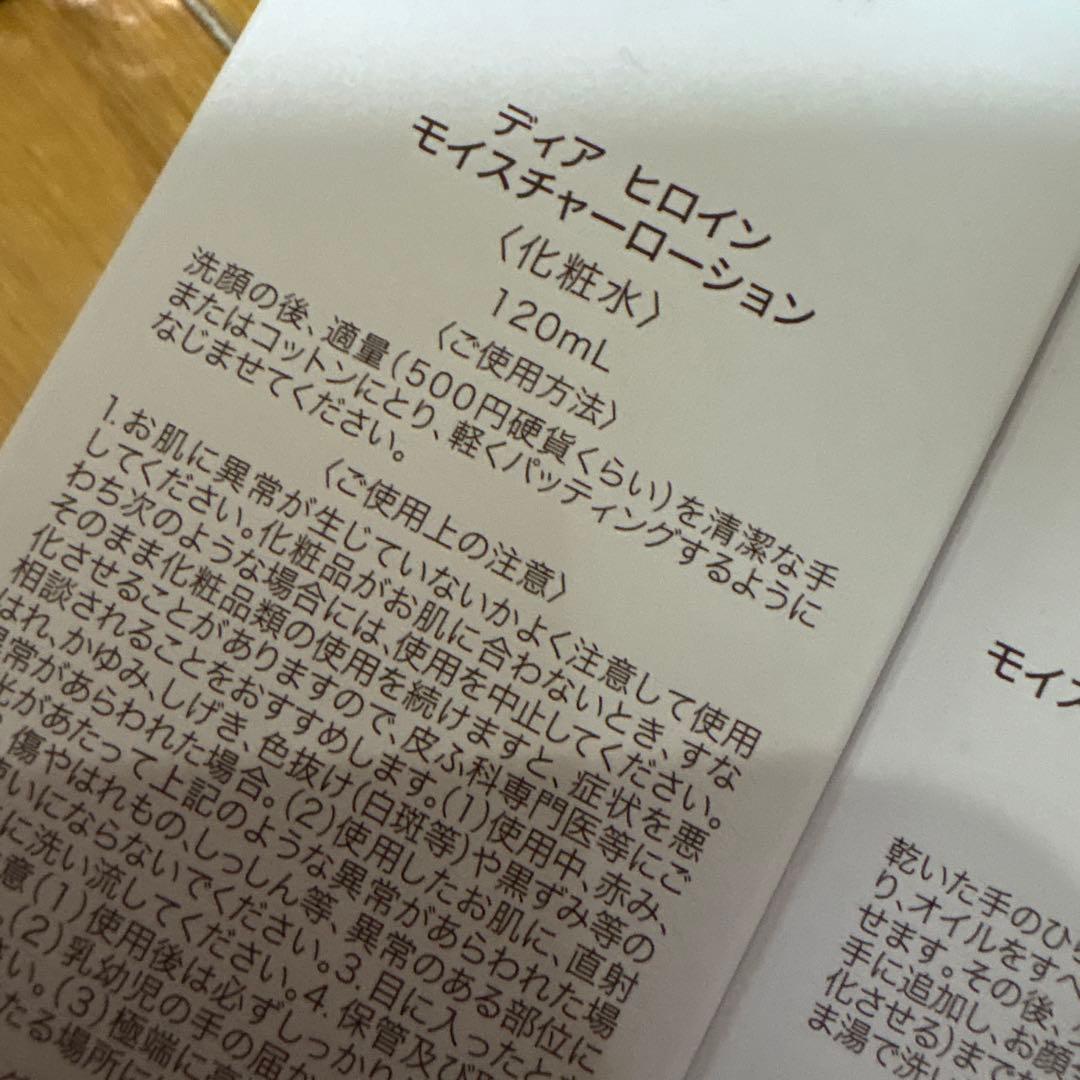 ディア ヒロイン
モイスチャーローション
〈化粧水〉
120mL
〈ご使用方法〉
洗顔の後、適量(500円硬貨くらい)を清潔な手
またはコットンにとり、軽くパッティングするように
なじませてください。
〈ご使用上の注意〉
1.お肌に異常が生じていないかよく注意して使用
してください。化粧品がお肌に合わないとき、すな
わち次のような場合には、使用を中止してください。
そのまま化粧品類の使用を続けますと、症状を悪
化させることがありますので、皮ふ科専門医等にご
相談されることをおすすめします。(1)使用中、赤み、
はれ、かゆみ、しげき、色抜け(白斑等)や黒ずみ等の
異常があらわれた場合。(2)使用したお肌に、直射
光があたって上記のような異常があらわれた場
傷やはれもの、しっしん等、異常のある部位に
いにならないでください。3.目に入ったと
に洗い流してください。4.保管及び
意(1)使用後は必ずしっかり
(2)乳幼児の手の届か
い。(3)極端に
たる場所に
モイ
乾いた手のひ
り、オイルをすべ
せます。その後、
手に追加し、お顔
化させる)まで
ま湯で洗い